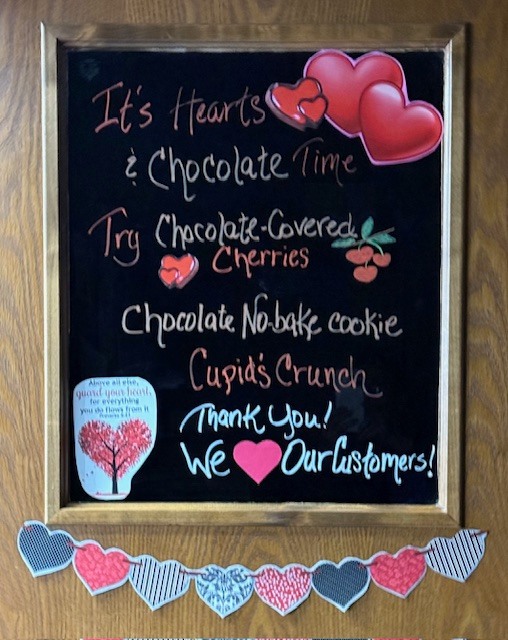 It's Hearts
& Chocolate Time
Try Chocolate-Covered
Cherries
Chocolate No-bake cookie
Cupid's Crunch
Thank You!
We Our Customers!
Above all else,
guard your heart,
for everything
you do flows from it
Proverbs 4:23